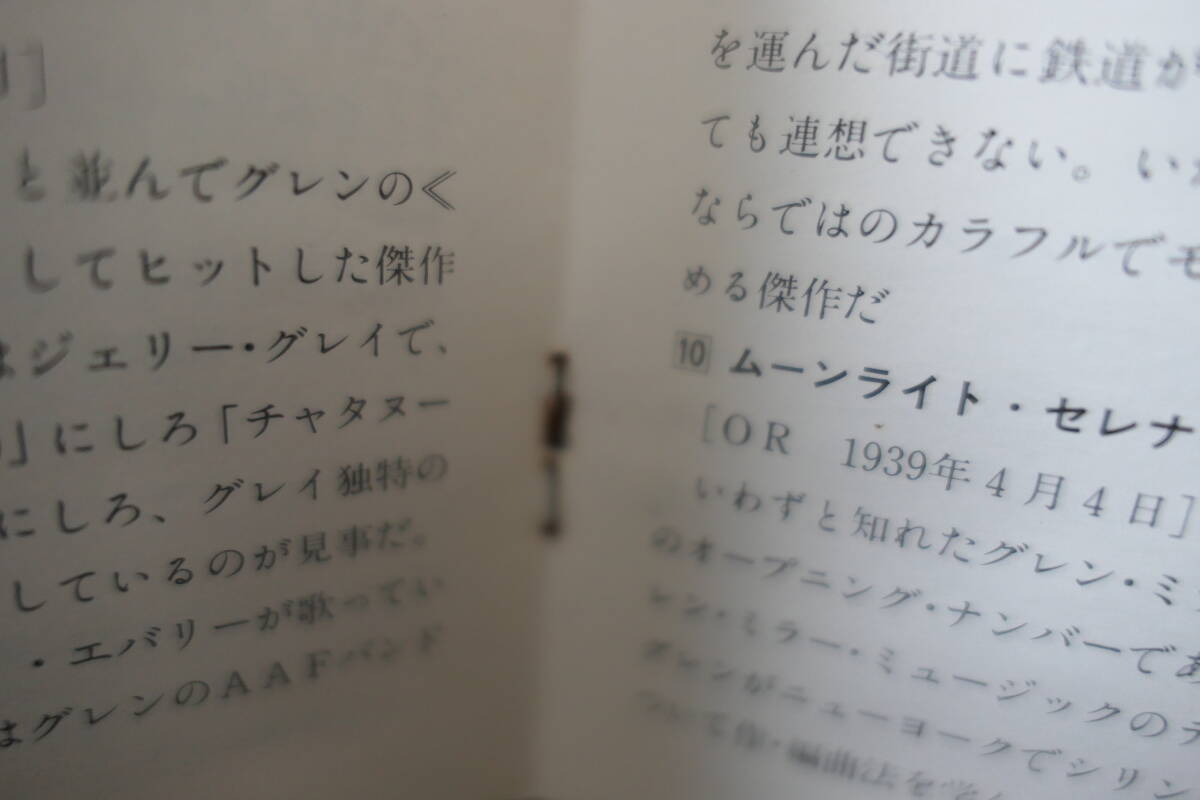 と並んでグレンの《
してヒットした傑作
はジェリー・グレイで、
」にしろ「チャタヌー
にしろ、グレイ独特の
しているのが見事だ。
・エバリーが歌ってい
はグレンのAAFバンド
を運んだ街道に鉄道が
ても連想できない。い
ならではのカラフルでモ
める傑作だ
10 ムーンライト・セレナ
[OR 1939年4月4日]
いわずと知れたグレン・ミ
のオープニング・ナンバーであ
レン・ミラー・ミュージックのテ
グレンがニューヨークでシリン
ついて作・編曲法を学ん